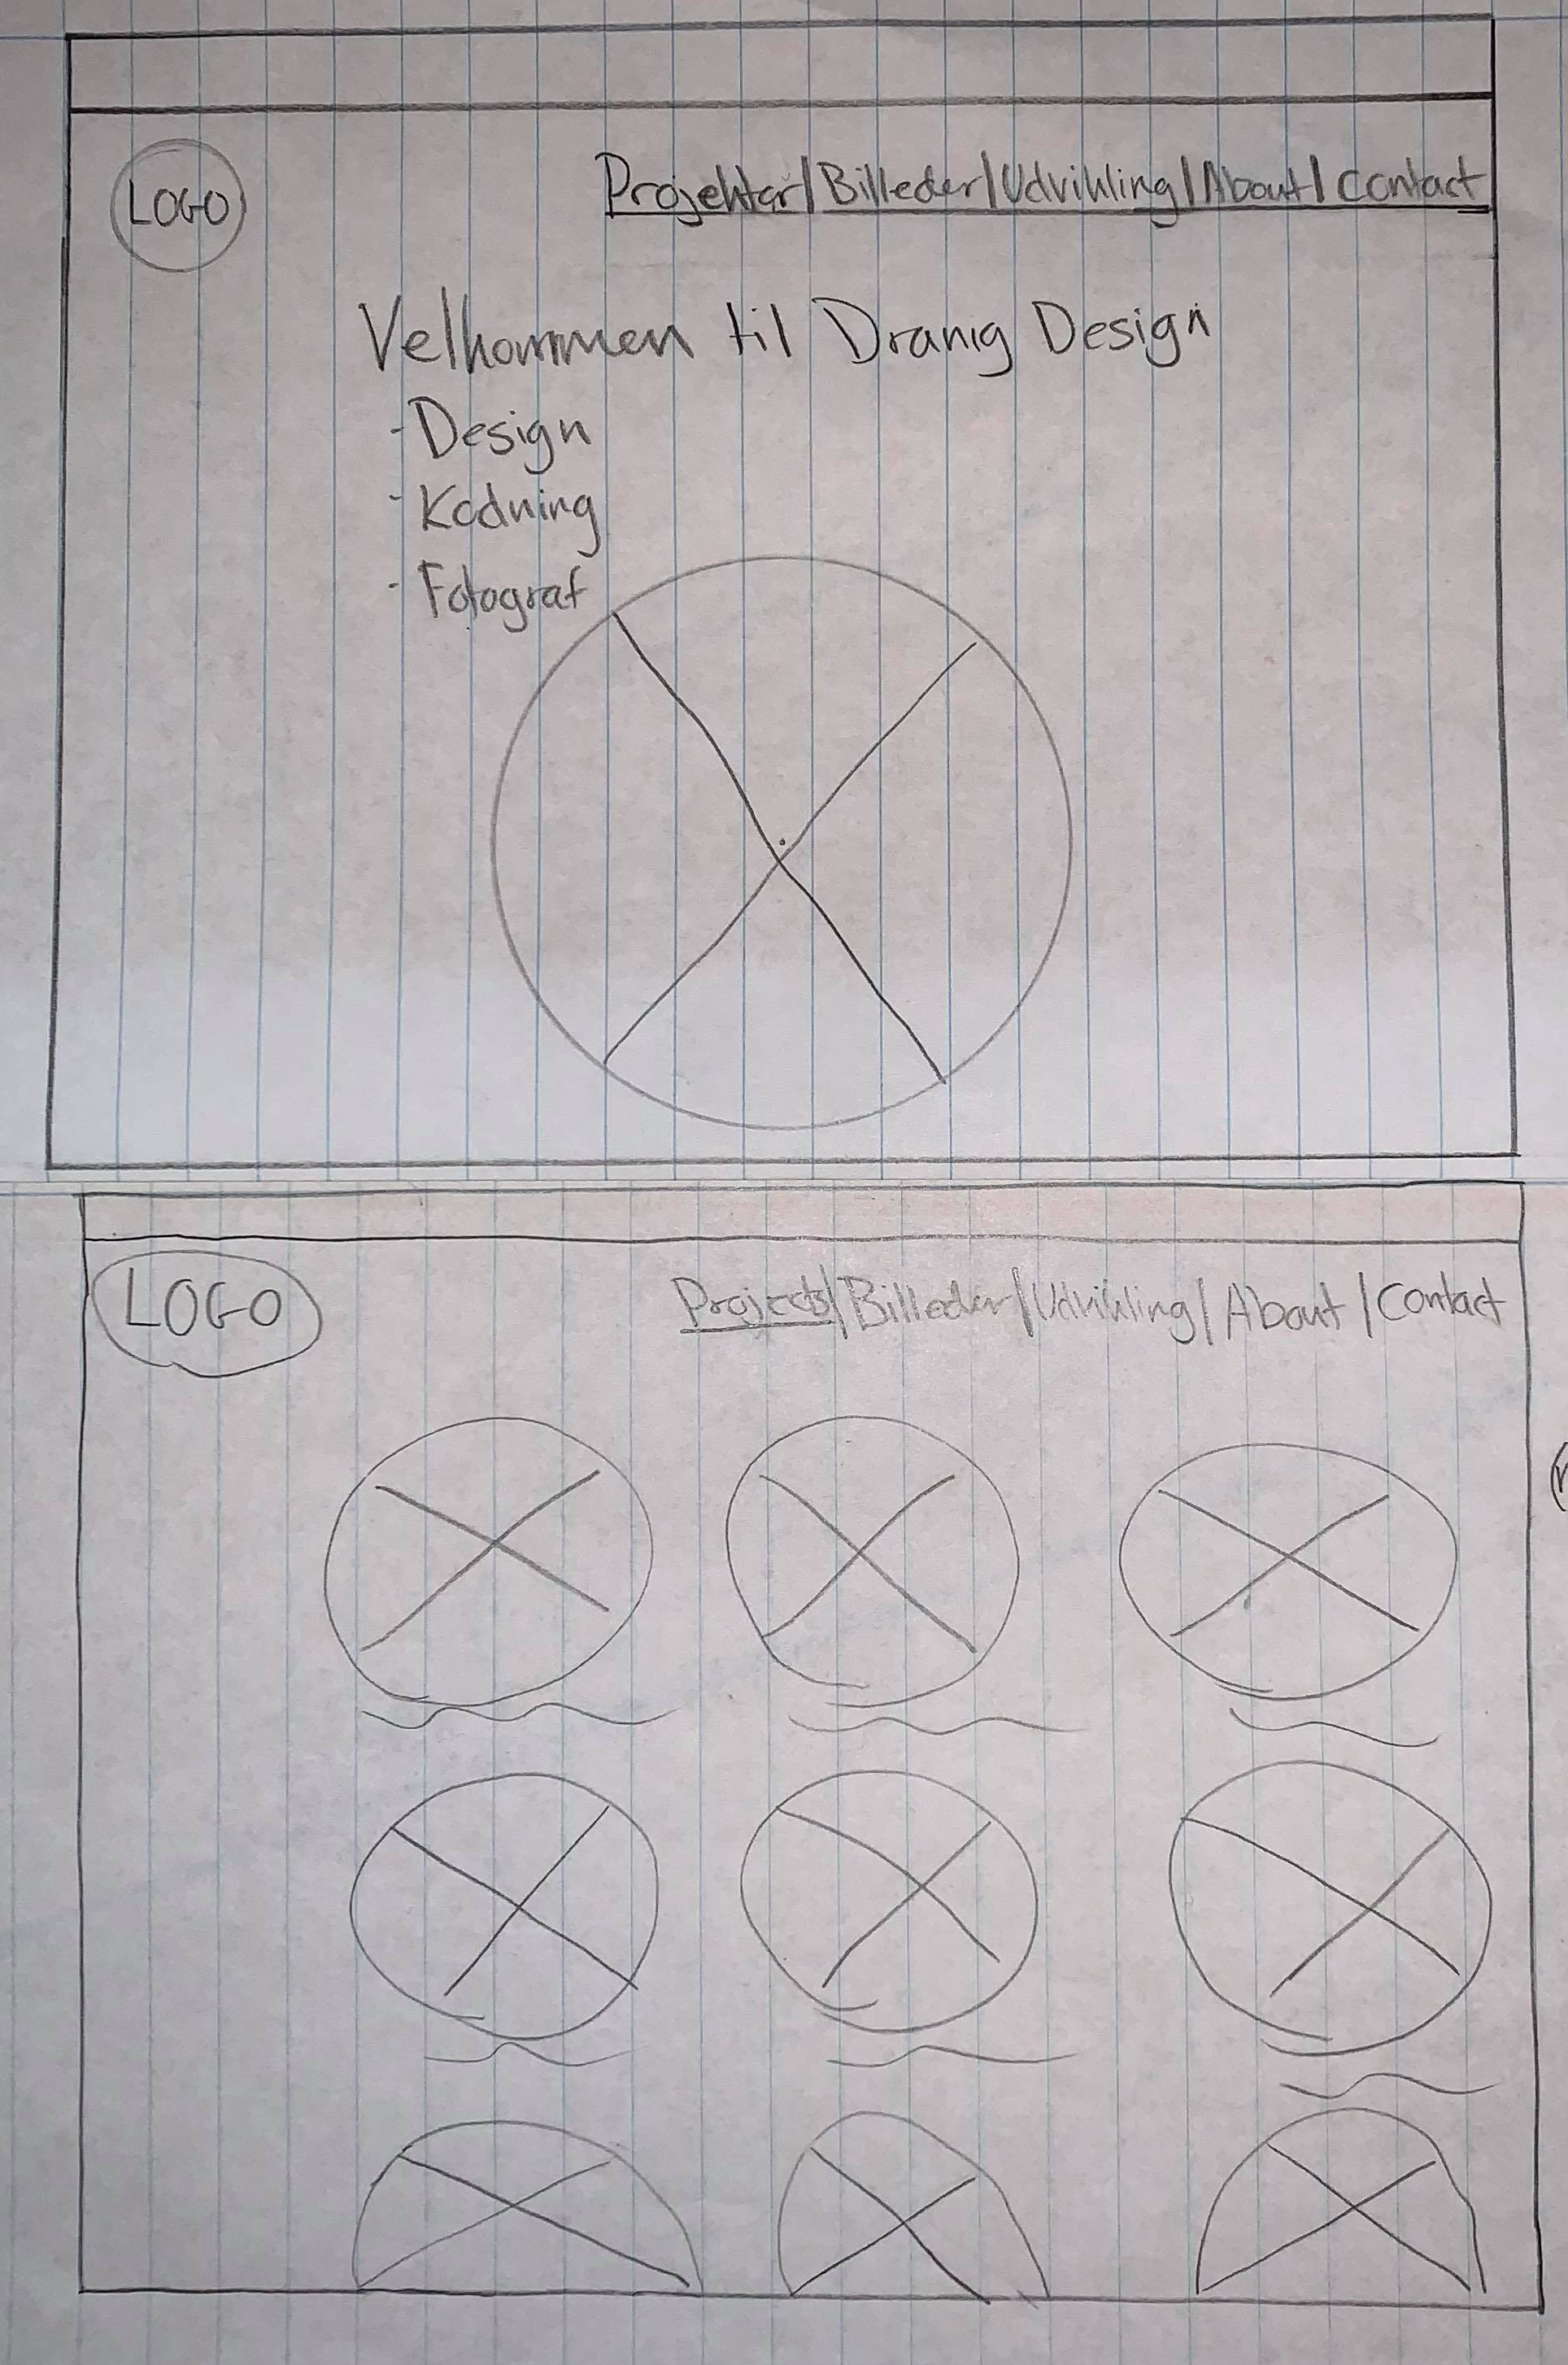 LOGO
Projektar/Billeder/Udvikling/About/Contact
Velkommen til Dranig Design
- Design
- Kodning
- Fotograf
LOGO
Projects/Billeder/Udvikling/About/Contact